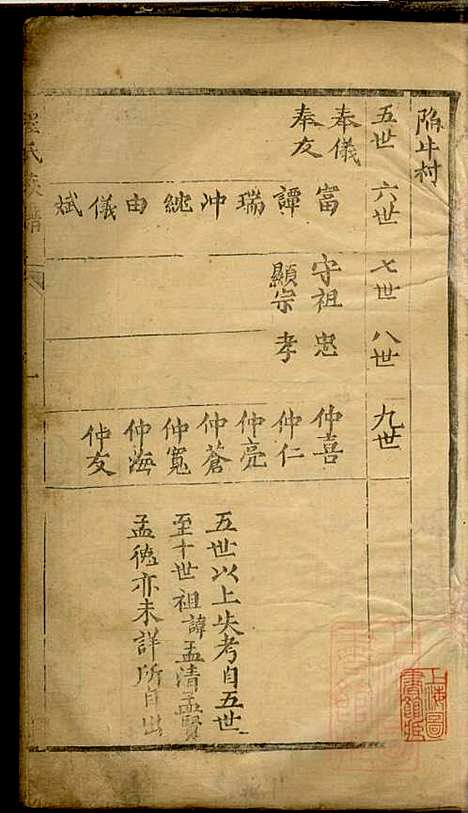 陷牛村
五世 六世 七世 八世 九世
奉儀
奉友
富 譚 瑞 冲 純 由 儀 斌
守祖
顯宗
忠
孝
仲喜
仲仁
仲亮
仲蒼
仲寬
仲海
仲友
五世以上失考自五世
至十世祖諱孟清孟賢
孟德亦未詳所自出
氏族譜
一
上海圖
書館藏